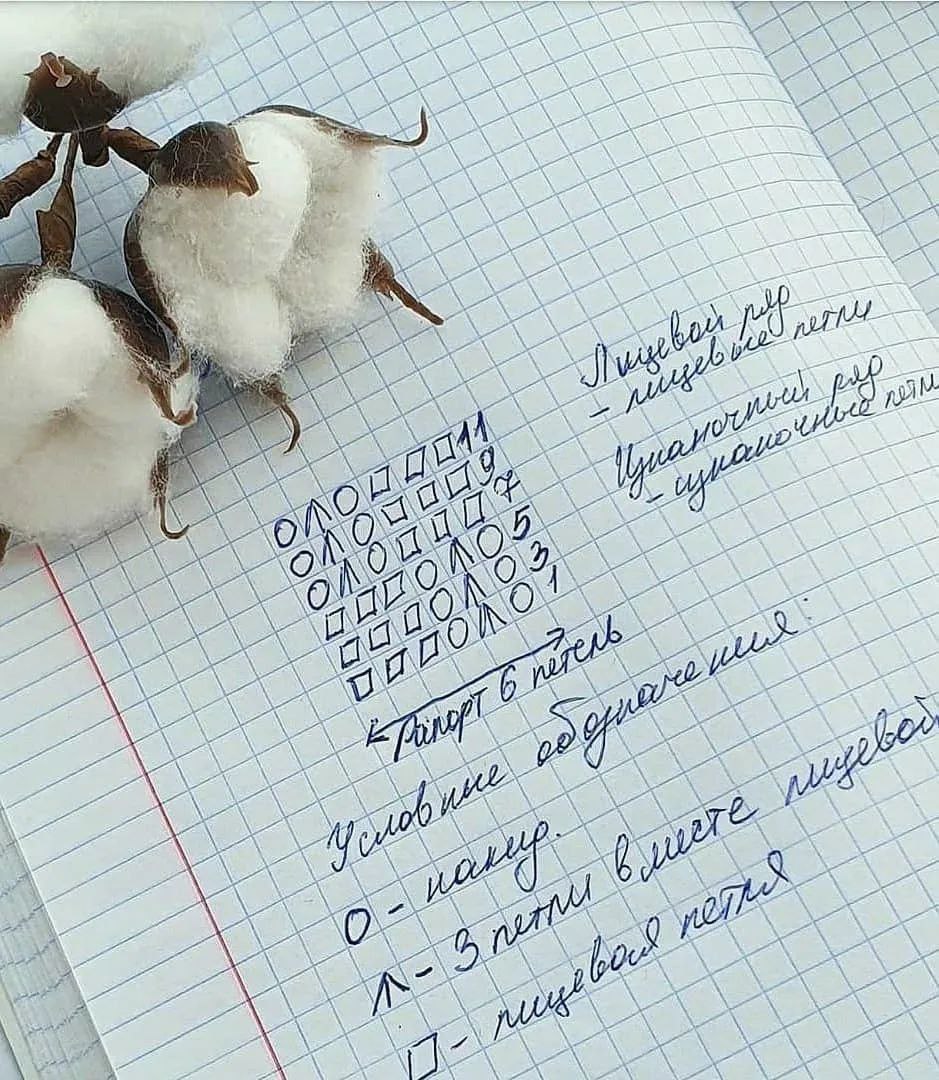 Лицевой ряд
- лицевые петли
Изнаночный ряд
- изнаночные петли
О Λ О □ □ □ 11
О Λ О □ □ □ 9
О Λ О □ □ □ 7
□ □ □ О Λ О 5
□ □ □ О Λ О 3
□ □ □ О Λ О 1
Рапорт 6 петель
Условные обозначения:
О - накид.
Λ - 3 петли вместе лицевой
□ - лицевая петля